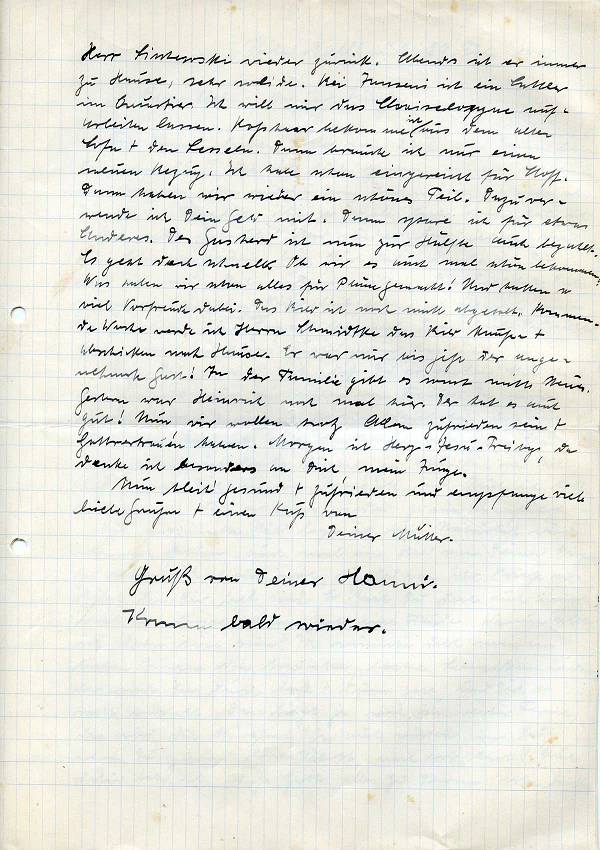 Herr Sintowski wieder zurück. Abends ist er immer
zu Hause, sehr solide. Bei Jansens ist ein Sattler
im Quartier. Ich will mir das Chaiselongue auf-
arbeiten lassen. Roßhaar bekomme ich aus dem alten
Sofa + den Sesseln. Dann brauche ich nur einen
neuen Bezug. Ich habe schon eingereicht für Stoff.
Dann haben wir wieder ein schönes Teil. Dazu ver-
wende ich Dein Geld mit. Dann spare ich für etwas
Anderes. Der Gasherd ist nun zur Hälfte auch bezahlt.
Es geht doch schnell. Ob wir es auch mal schön bekommen?
Was haben wir schon alles für Pläne gemacht! Und hatten so
viel Vorfreude dabei. Das Bild ist noch nicht abgeholt. Kommen-
de Woche werde ich Herrn Schmidtke das Bild kaufen +
abschicken nach Hause. Er war mir bis jetzt der ange-
nehmste Gast! In der Familie gibt es sonst nichts Neues.
Gestern war Heinrich noch mal hier. Der hat es auch
gut! Nun wir wollen trotz Allem zufrieden sein +
Gottvertrauen haben. Morgen ist Herz-Jesu-Freitag, da
denke ich besonders an Dich mein Junge.
Nun bleib gesund + zufrieden und empfange viele
liebe Grüße + einen Kuß von
Deiner Mutter.
Gruß von Deiner Hanni.
Komm bald wieder.